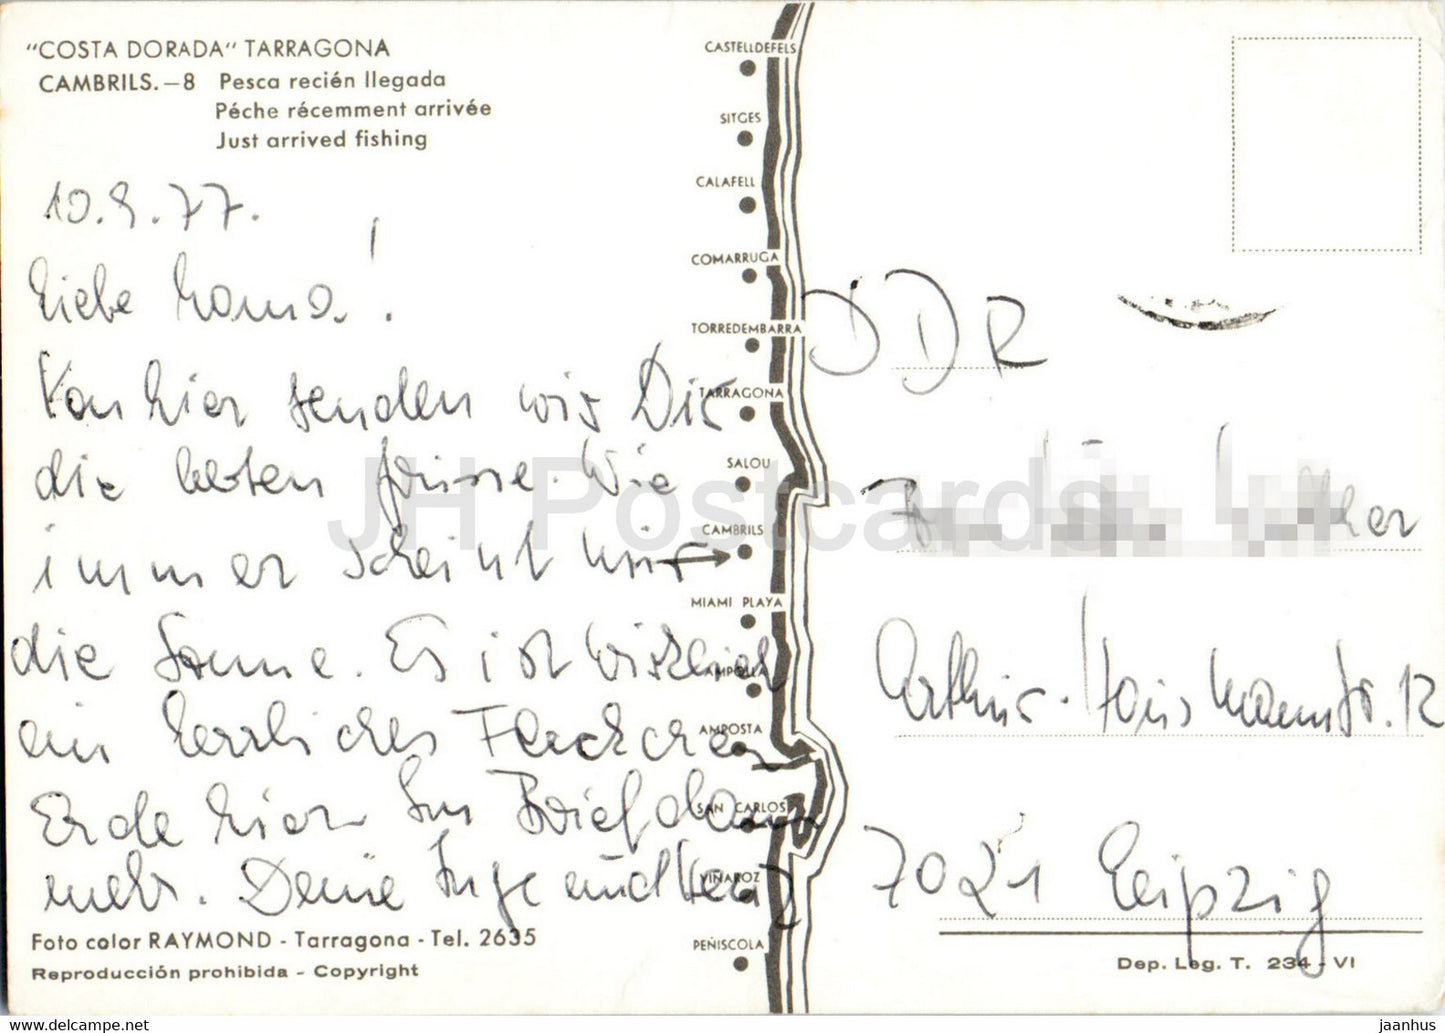 "COSTA DORADA" TARRAGONA
CAMBRILS.—8 Pesca recién llegada
Péche récemment arrivée
Just arrived fishing
10.9.77.
Liebe Mama!
Von hier senden wir Dir
die besten Grüsse. Wie
immer scheint hier
die Sonne. Es ist wirklich
ein herrliches Fleckchen
Erde hier. Im Brief dann
mehr. Deine Inge und
Foto color RAYMOND - Tarragona - Tel. 2635
Reproducción prohibida - Copyright
CASTELLDEFELS
SITGES
CALAFELL
COMARRUGA
TORREDEMBARRA
TARRAGONA
SALOU
CAMBRILS
MIAMI PLAYA
AMPOLLA
AMPOSTA
SAN CARLOS
VIÑAROZ
PEÑISCOLA
DDR
Arthur-Hausmannstr. 12
7021 Leipzig
Dep. Leg. T. 234 - VI
JH Postcards
https://www.hippostcard.com/store/jaanhus